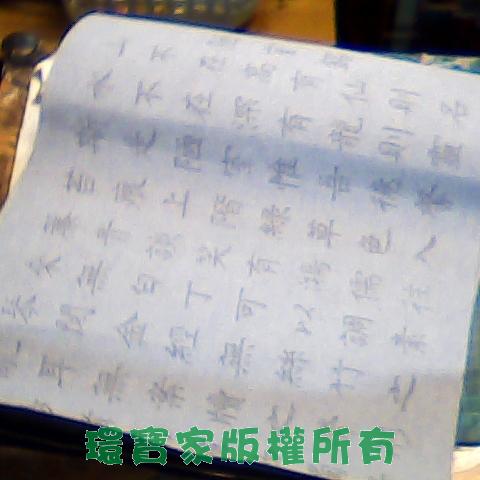 不在高有仙則名
水不在深有龍則靈
斯是陋室惟吾德馨
苔痕上階綠草色入
簾青談笑有鴻儒往
來無白丁可以調素
琴閱金經無絲竹之
亂耳無案牘之勞形
環寶家版權所有